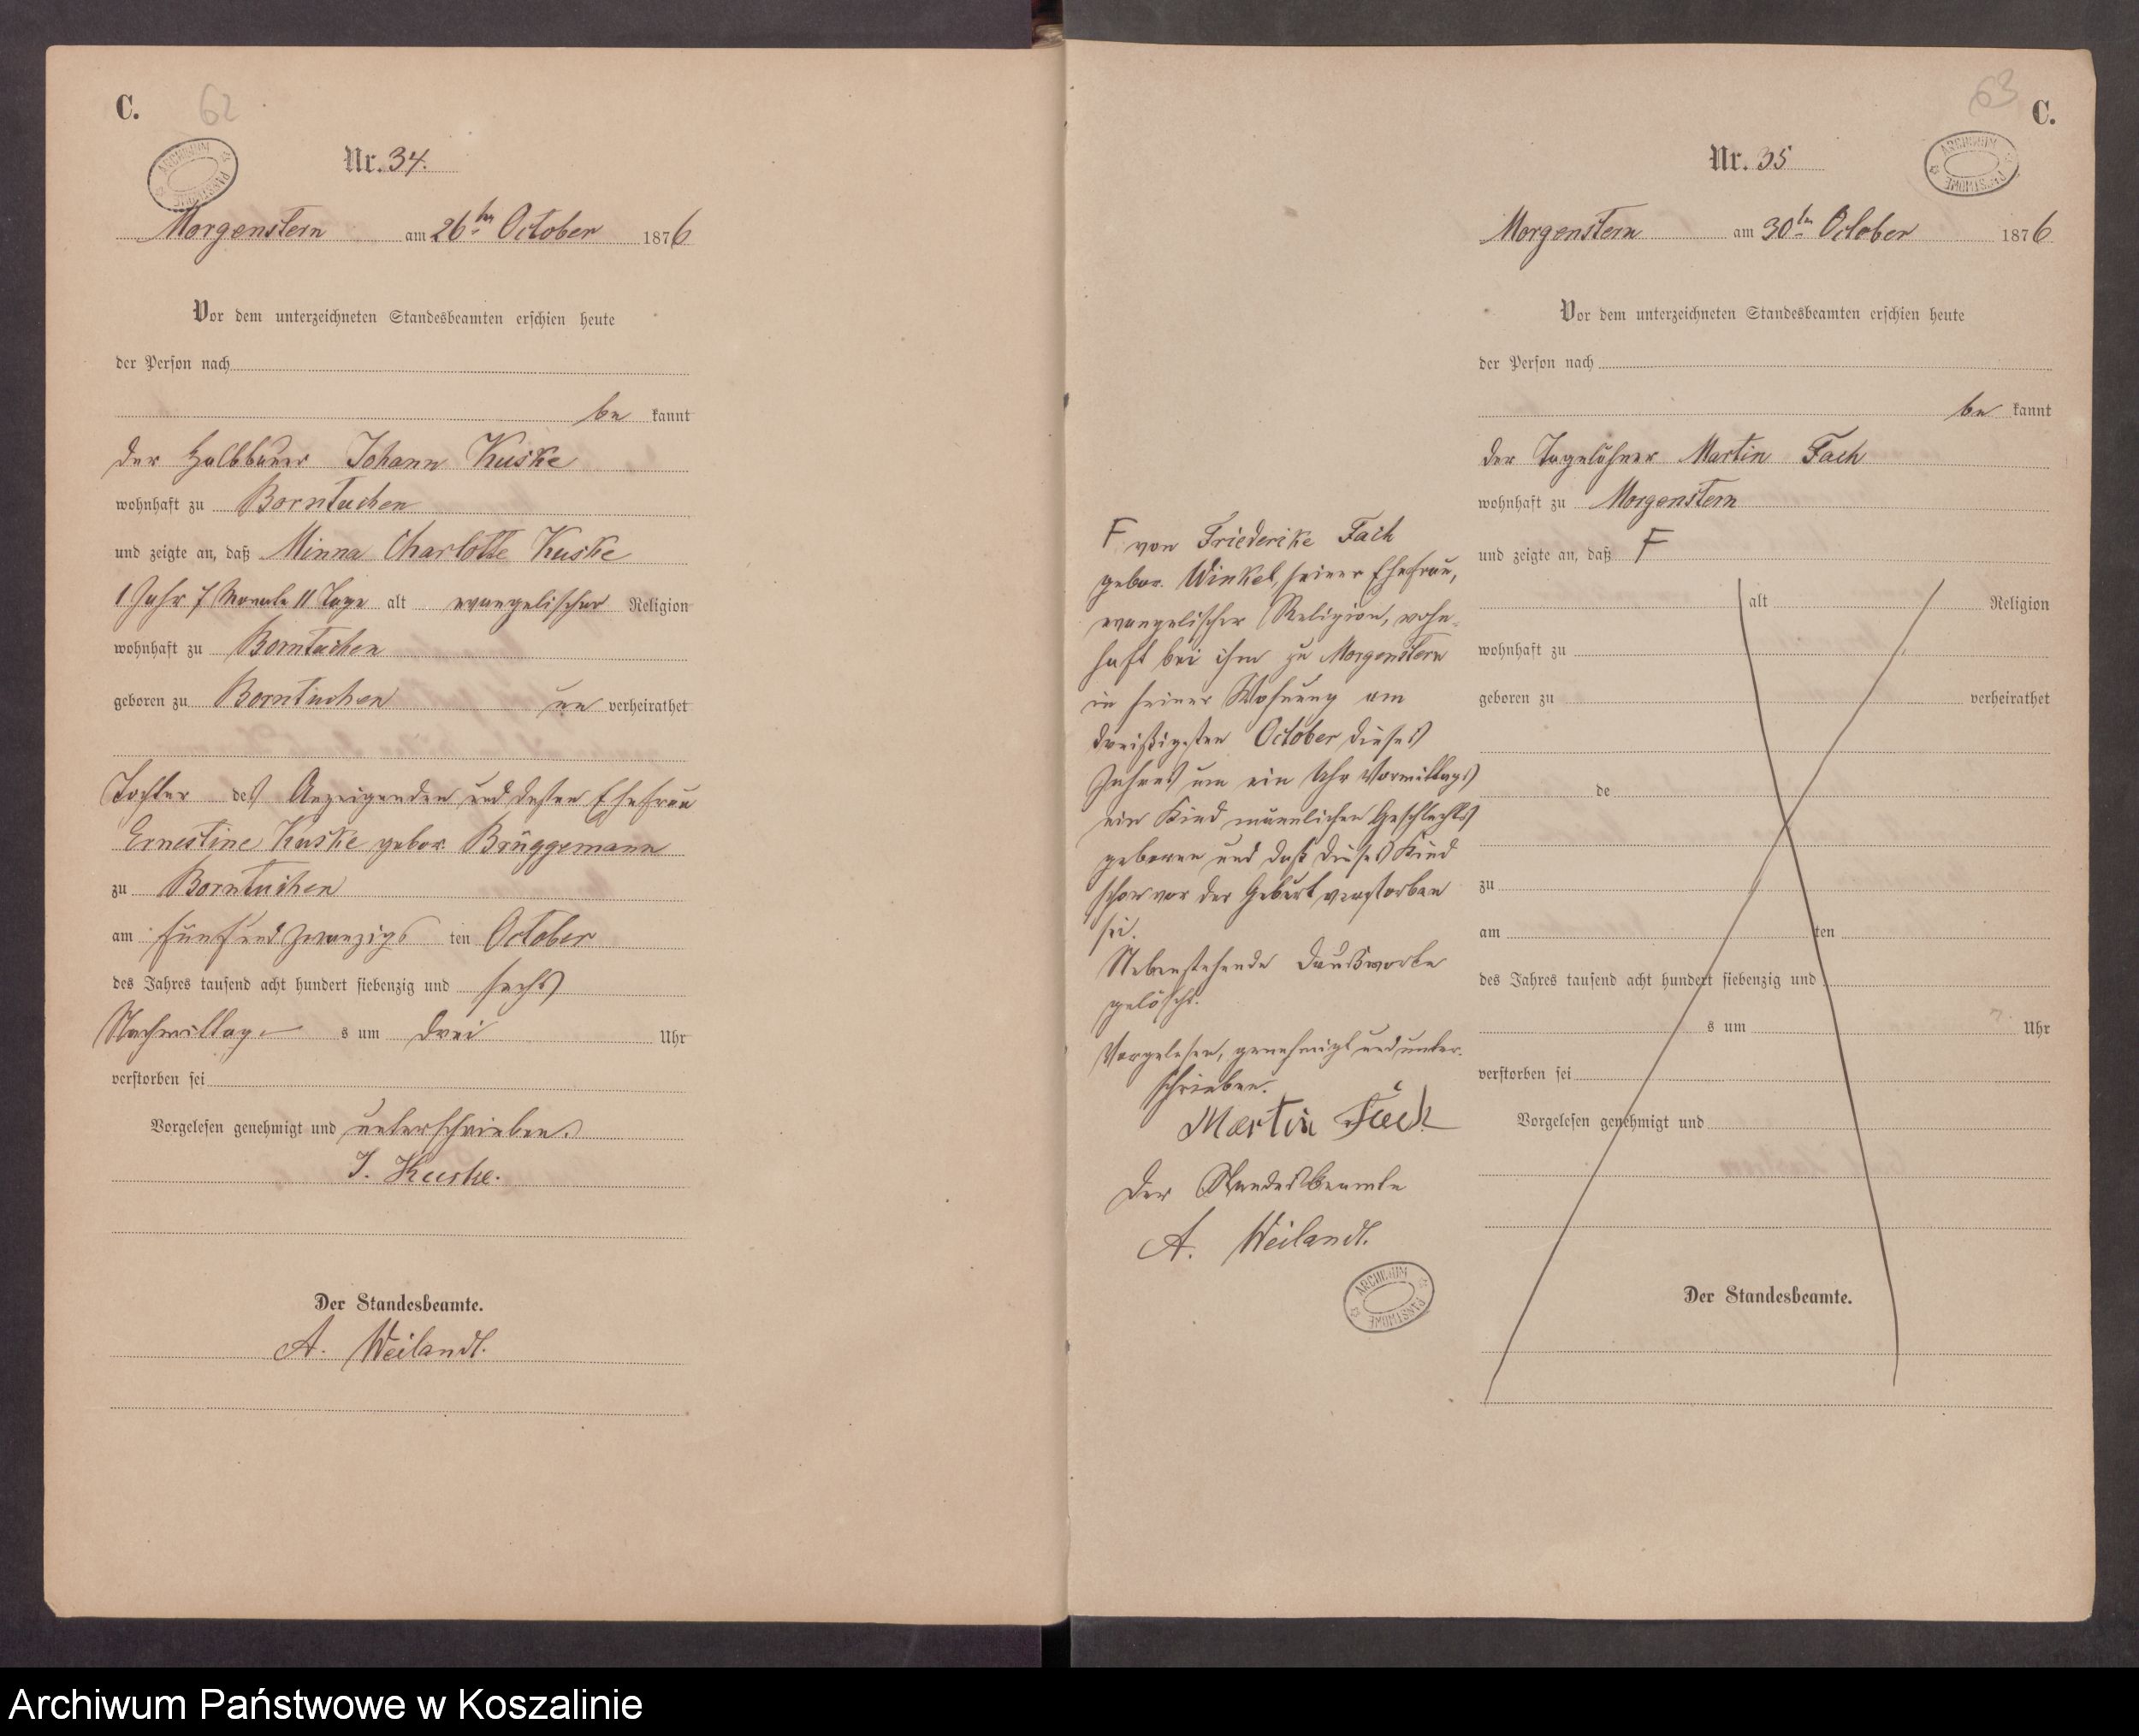 C.
62
ARCHIWUM PAŃSTWOWE
Nr. 34.
Morgenstern am 26ten October 1876
Vor dem unterzeichneten Standesbeamten erschien heute
der Person nach
be kannt
der Halbbauer Johann Kuske
wohnhaft zu Borntuchen
und zeigte an, daß Minna Charlotte Kuske
1 Jahr 7 Monate 11 Tage alt evangelischer Religion
wohnhaft zu Borntuchen
geboren zu Borntuchen un verheirathet
Tochter des Anzeigenden und dessen Ehefrau
Ernestine Kuske gebor. Brüggemann
zu Borntuchen
am fünfundzwanzigs ten October
des Jahres tausend acht hundert siebenzig und sechs
Nachmittag s um drei Uhr
verstorben sei
Vorgelesen genehmigt und unterschrieben.
J. Kuske.
Der Standesbeamte.
A. Weilandt.
63
C.
ARCHIWUM PAŃSTWOWE
Nr. 35
Morgenstern am 30ten October 1876
Vor dem unterzeichneten Standesbeamten erschien heute
der Person nach
be kannt
der Tagelöhner Martin Fach
wohnhaft zu Morgenstern
und zeigte an, daß F
alt Religion
wohnhaft zu
geboren zu verheirathet
de
zu
am ten
des Jahres tausend acht hundert siebenzig und
s um Uhr
verstorben sei
Vorgelesen genehmigt und
Der Standesbeamte.
F von Friederike Fach
gebor. Winkel, seiner Ehefrau,
evangelischer Religion, wohn-
haft bei ihm zu Morgenstern
in seiner Wohnung am
dreißigsten October dieses
Jahres um ein Uhr Vormittags
ein Kind männlichen Geschlechts
geboren und daß dieses Kind
schon vor der Geburt verstorben
sei.
Nebenstehende Druckworte
gelöscht.
Vorgelesen, genehmigt und unter-
schrieben.
Martin Fach
Der Standesbeamte
A. Weilandt.
ARCHIWUM PAŃSTWOWE
Archiwum Państwowe w Koszalinie